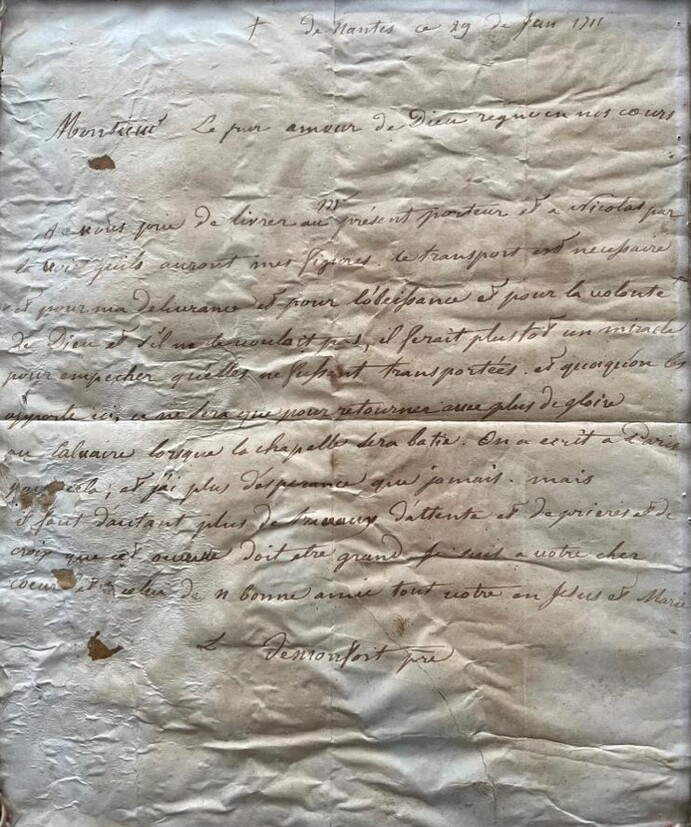 † de Nantes ce 29 de Jan 1711
Monsieur Le pur amour de Dieu regne en nos cœurs
Je vous prie de livrer au présent porteur et a Nicolas par
la voie qu'ils auront mes figures. le transport est necessaire
et pour ma delivrance et pour l'obeissance et pour la volonté
de Dieu et s'il ne le voulait pas, il ferait plustot un miracle
pour empecher qu'elles ne fussent transportées. et quoiqu'on les
apporte ici, ce ne sera que pour retourner avec plus de gloire
au Calvaire lorsque la chapelle sera batie. On a ecrit a Paris
pour cela, et j'ai plus d'esperance que jamais. mais
il faut d'autant plus de travaux d'attente et de prieres et de
croix que cet doit etre grand. Je suis a votre cher
coeur et a celui de n bonne amie tout votre en Jesus et Marie
L demonfort pre